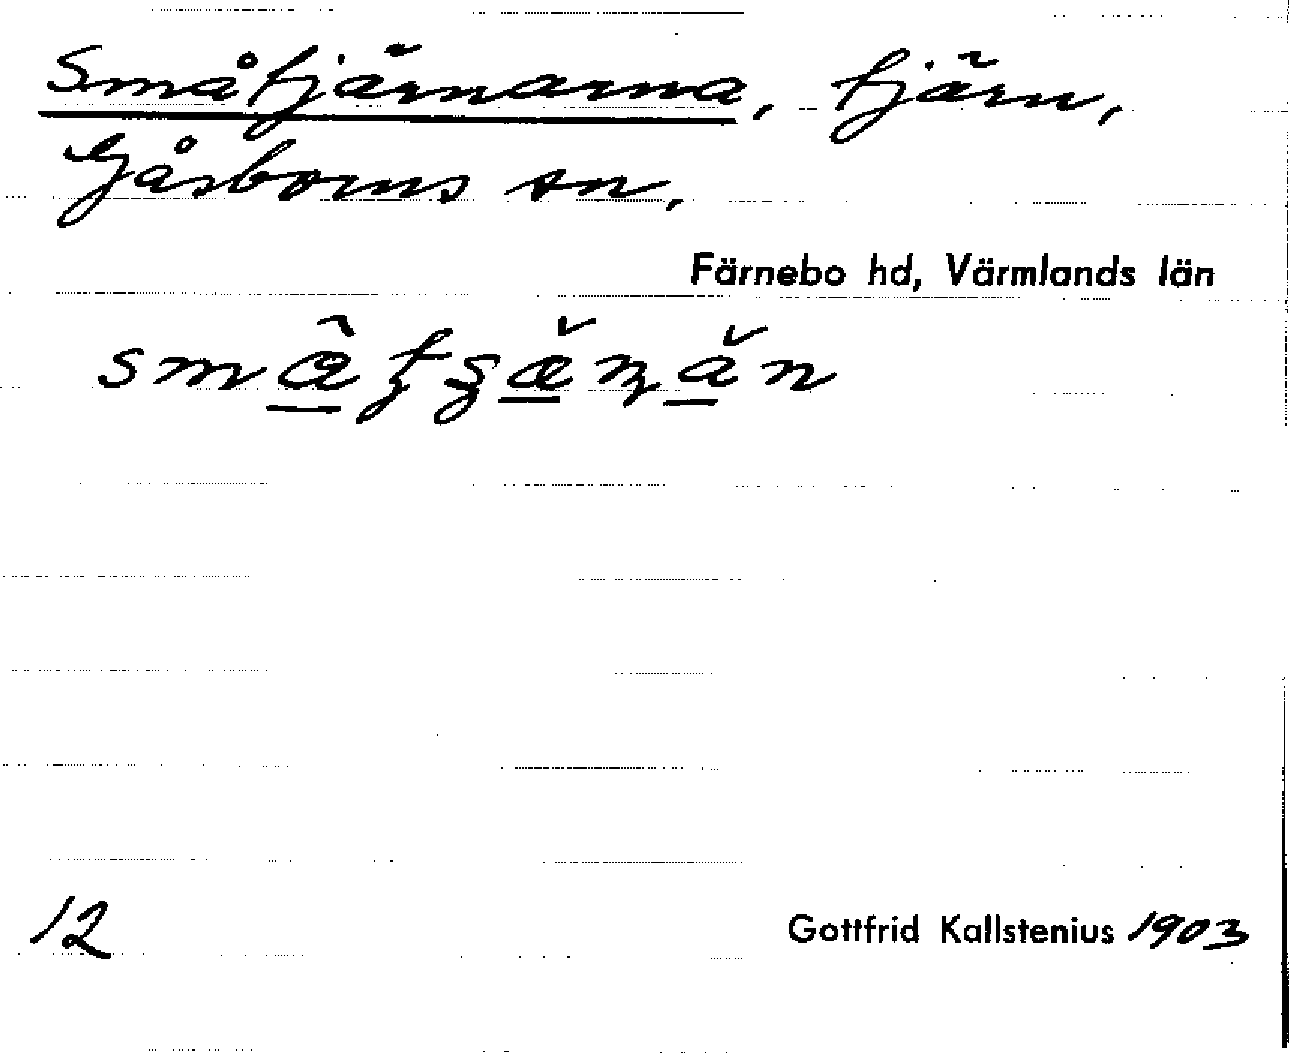 Småtjärnarna, tjärn,
Gåsborns sn,
Färnebo hd, Värmlands län
12
Gottfrid Kallstenius 1903